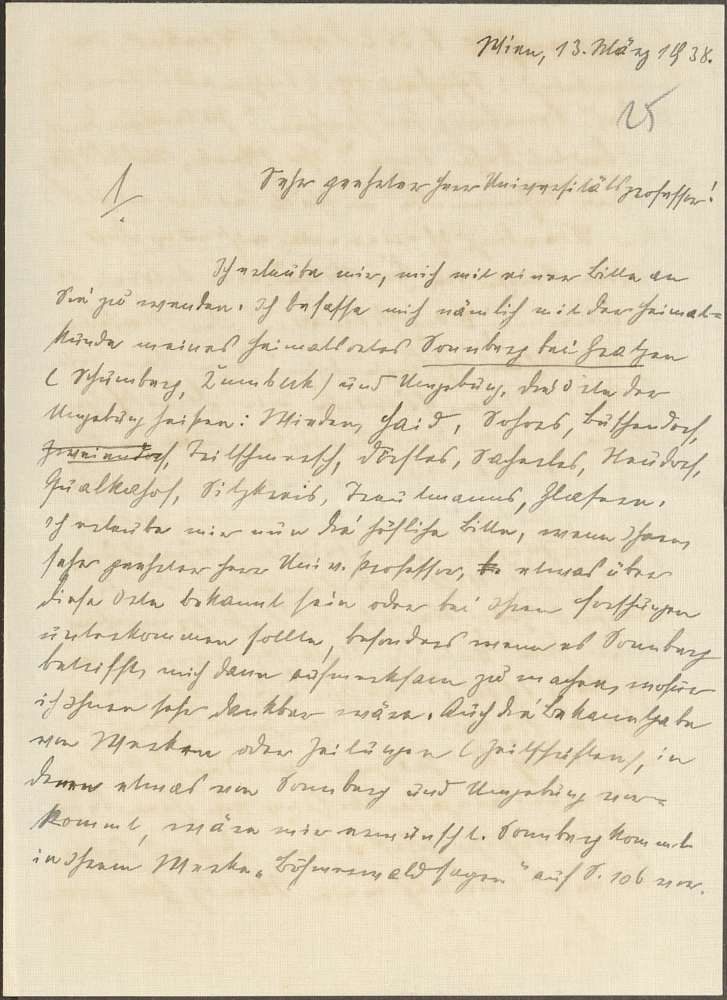 Wien, 13. März 1938.
25
1/.
Sehr geehrter Herr Universitätsprofessor!
Ich erlaube mir, mich mit einer Bitte an
Sie zu wenden. Ich befasse mich nämlich mit der Heimat-
kunde meines Heimatortes Sonnberg bei Gratzen
(Schumberg, Zumberk) und Umgebung. Die Orte der
Umgebung heißen: Winden, Haid, Sohors, Buschendorf,
Hrweindorf, Teiltschmersch, Dörfles, Sacherles, Neudorf,
Gualkahof, Sitzkreis, Trautmanns, Glasern.
Ich erlaube mir nun die höfliche Bitte, wenn Ihnen,
sehr geehrter Herr Univ. Professor, etwas über
diese Orte bekannt sein oder bei Ihren Forschungen
unterkommen sollte, besonders wenn es Sonnberg
betrifft, mich dann aufmerksam zu machen, wofür
ich Ihnen sehr dankbar wäre. Auch die Bekanntgabe
von Werken oder Zeitungen (Zeitschriften), in
denen etwas von Sonnberg und Umgebung vor-
kommt, wäre mir erwünscht. Sonnberg kommt
in Ihrem Werke „Böhmerwaldsagen" auf S. 106 vor.